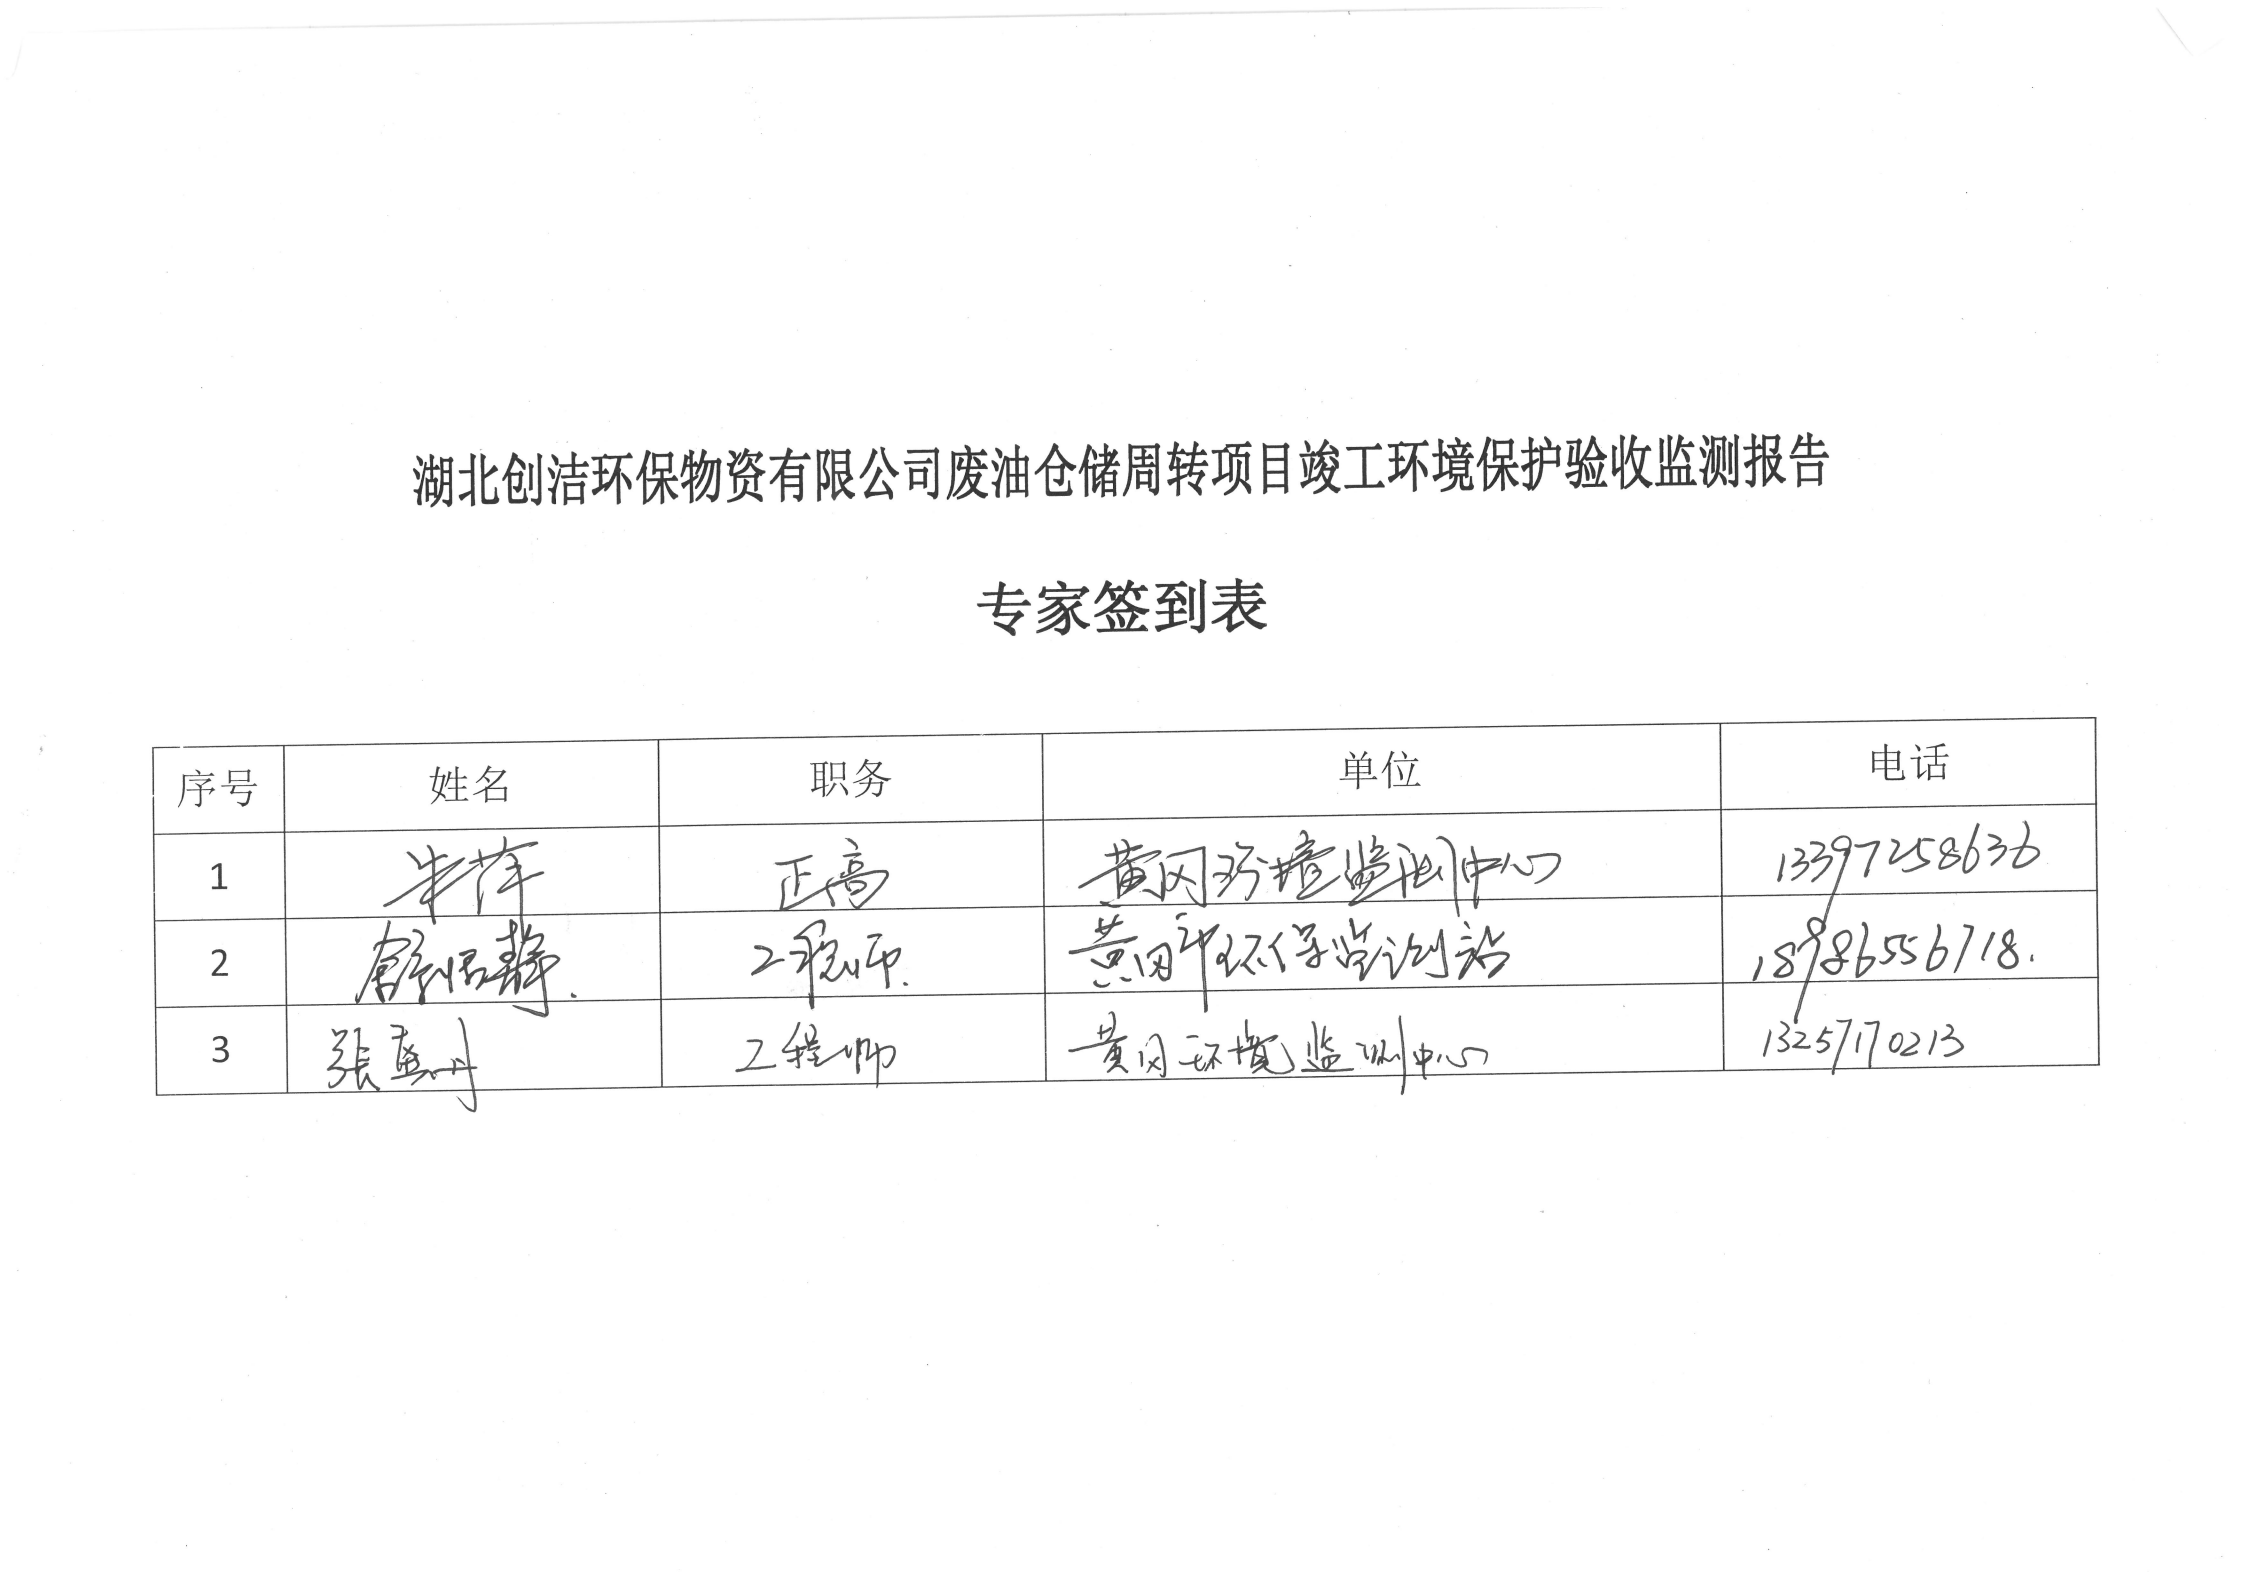 湖北创洁环保物资有限公司废油仓储周转项目竣工环境保护验收监测报告
专家签到表
序号 姓名 职务 单位 电话
1 牛萍 正高 黄冈环境监测中心 13397258636
2 舒 静. 工程师. 黄冈市环保监测站 18986556718.
3 張 丹 工程师 黄冈环境监测中心 13257170213